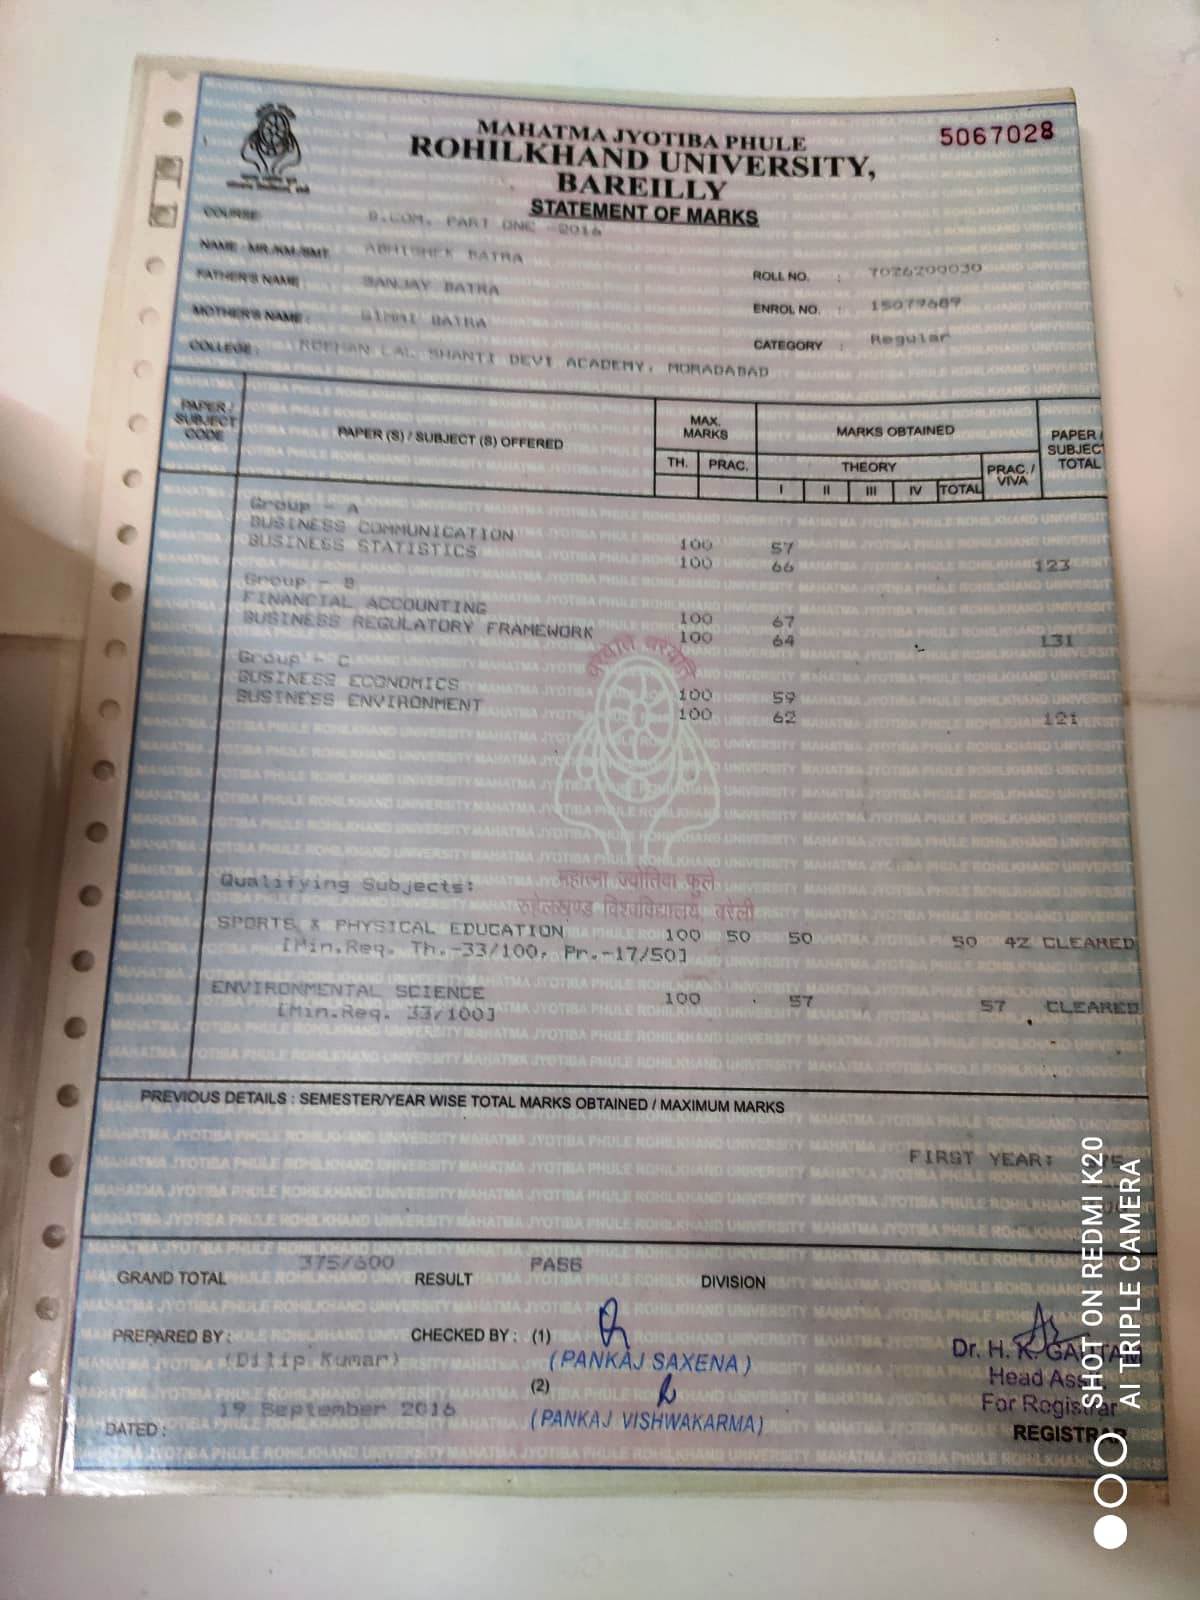 MAHATMA JYOTIBA PHULE
ROHILKHAND UNIVERSITY,
BAREILLY
STATEMENT OF MARKS
5067028
COURSE B.COM. PART ONE -2016
NAME - MR./KM./SMT. ABHISHEK BATRA
FATHER'S NAME : SANJAY BATRA
ROLL NO. : 7026200030
MOTHER'S NAME : SIMMI BATRA
ENROL NO. : 15079689
CATEGORY : Regular
COLLEGE : ROSHAN LAL SHANTI DEVI ACADEMY, MORADABAD
PAPER / SUBJECT CODE PAPER (S) / SUBJECT (S) OFFERED MAX. MARKS MARKS OBTAINED PAPER / SUBJECT TOTAL
TH. PRAC. THEORY PRAC. / VIVA
I II III IV TOTAL
Group - A
BUSINESS COMMUNICATION 100 57
BUSINESS STATISTICS 100 66 123
Group - B
FINANCIAL ACCOUNTING 100 67
BUSINESS REGULATORY FRAMEWORK 100 64 131
Group - C
BUSINESS ECONOMICS 100 59
BUSINESS ENVIRONMENT 100 62 121
महात्मा ज्योतिबा फूले
रुहेलखण्ड विश्वविद्यालय, बरेली
Qualifying Subjects:
SPORTS & PHYSICAL EDUCATION 100 50 50 50 42 CLEARED
[Min.Req. Th.-33/100, Pr.-17/50]
ENVIRONMENTAL SCIENCE 100 57 57 CLEARED
[Min.Req. 33/100]
PREVIOUS DETAILS : SEMESTER/YEAR WISE TOTAL MARKS OBTAINED / MAXIMUM MARKS
FIRST YEAR:
GRAND TOTAL 375/600 RESULT PASS DIVISION
PREPARED BY : (Dilip Kumar) CHECKED BY : (1)
(PANKAJ SAXENA)
(2)
(PANKAJ VISHWAKARMA)
DATED : 19 September 2016
Dr. H. K. GAUTAM
Head Asst.
For Registrar
REGISTRAR
SHOT ON REDMI K20
AI TRIPLE CAMERA